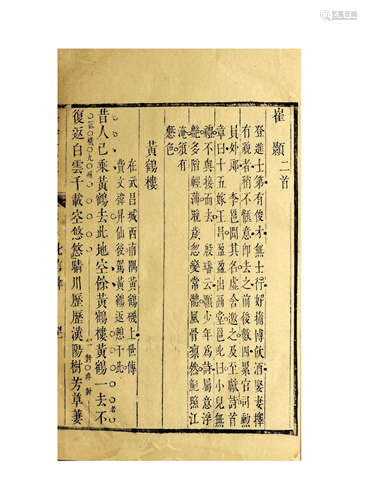 崔顥二首
登進士第有俊才無士行好蒱博飲酒娶妻擇
有貌者稍不愜意即去之前後數四累官司勲
員外郎李邕聞其名虛舍邀之及至獻詩首
章曰十五嫁王昌盈盈出畫堂邕叱曰小兒無
禮不與接而去殷璠云顥少年為詩屬意浮
艷多陷輕薄晚歲忽變常體風骨凛然鮑照江
淹須有
慙色
黃鶴樓
在武昌城西南隅黃鶴磯上世傳
費文褘昇仙後駕黃鶴返憩于此
昔人已乘黃鶴去此地空餘黃鶴樓黃鶴一去不
復返白雲千載空悠悠晴川歷歷漢陽樹芳草萋